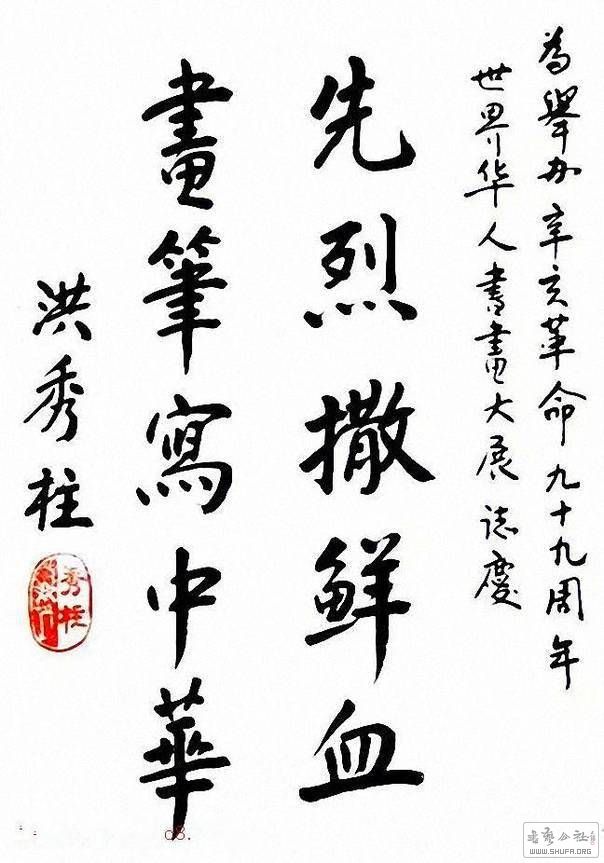 為舉办辛亥革命九十九周年
世界华人書畫大展誌慶
先烈撒鮮血
畫筆寫中華
洪秀柱
秀柱
書藝公社
WWW.SHUFA.ORG